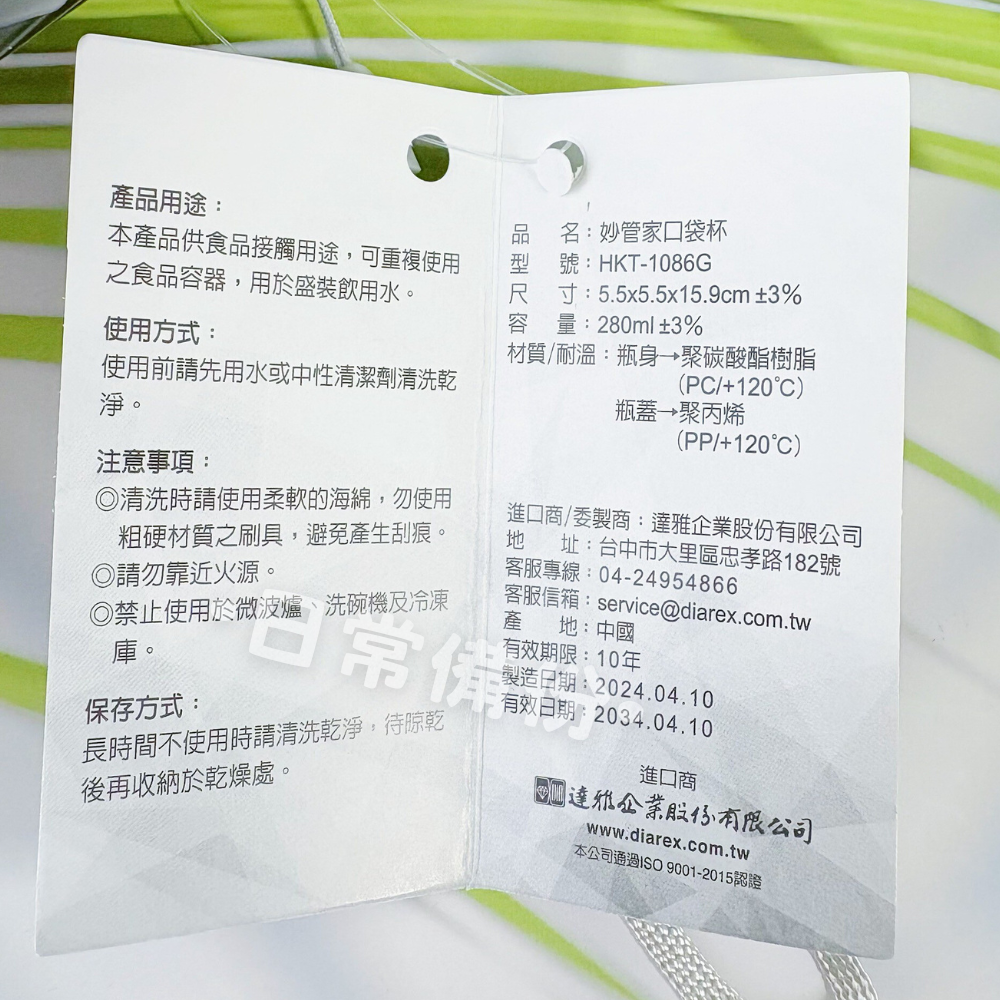 產品用途：
本產品供食品接觸用途，可重複使用
之食品容器，用於盛裝飲用水。
使用方式：
使用前請先用水或中性清潔劑清洗乾
淨。
注意事項：
◎清洗時請使用柔軟的海綿，勿使用
粗硬材質之刷具，避免產生刮痕。
◎請勿靠近火源。
◎禁止使用於微波爐、洗碗機及冷凍
庫。
保存方式：
長時間不使用時請清洗乾淨，待晾乾
後再收納於乾燥處。
品 名：妙管家口袋杯
型 號：HKT-1086G
尺 寸：5.5x5.5x15.9cm ±3%
容 量：280ml ±3%
材質/耐溫：瓶身→聚碳酸酯樹脂
（PC/+120℃）
瓶蓋→聚丙烯
（PP/+120℃）
進口商/委製商：達雅企業股份有限公司
地 址：台中市大里區忠孝路182號
客服專線：04-24954866
客服信箱：service@diarex.com.tw
產 地：中國
有效期限：10年
製造日期：2024.04.10
有效日期：2034.04.10
進口商
達雅企業股份有限公司
www.diarex.com.tw
本公司通過ISO 9001-2015認證
日常備份